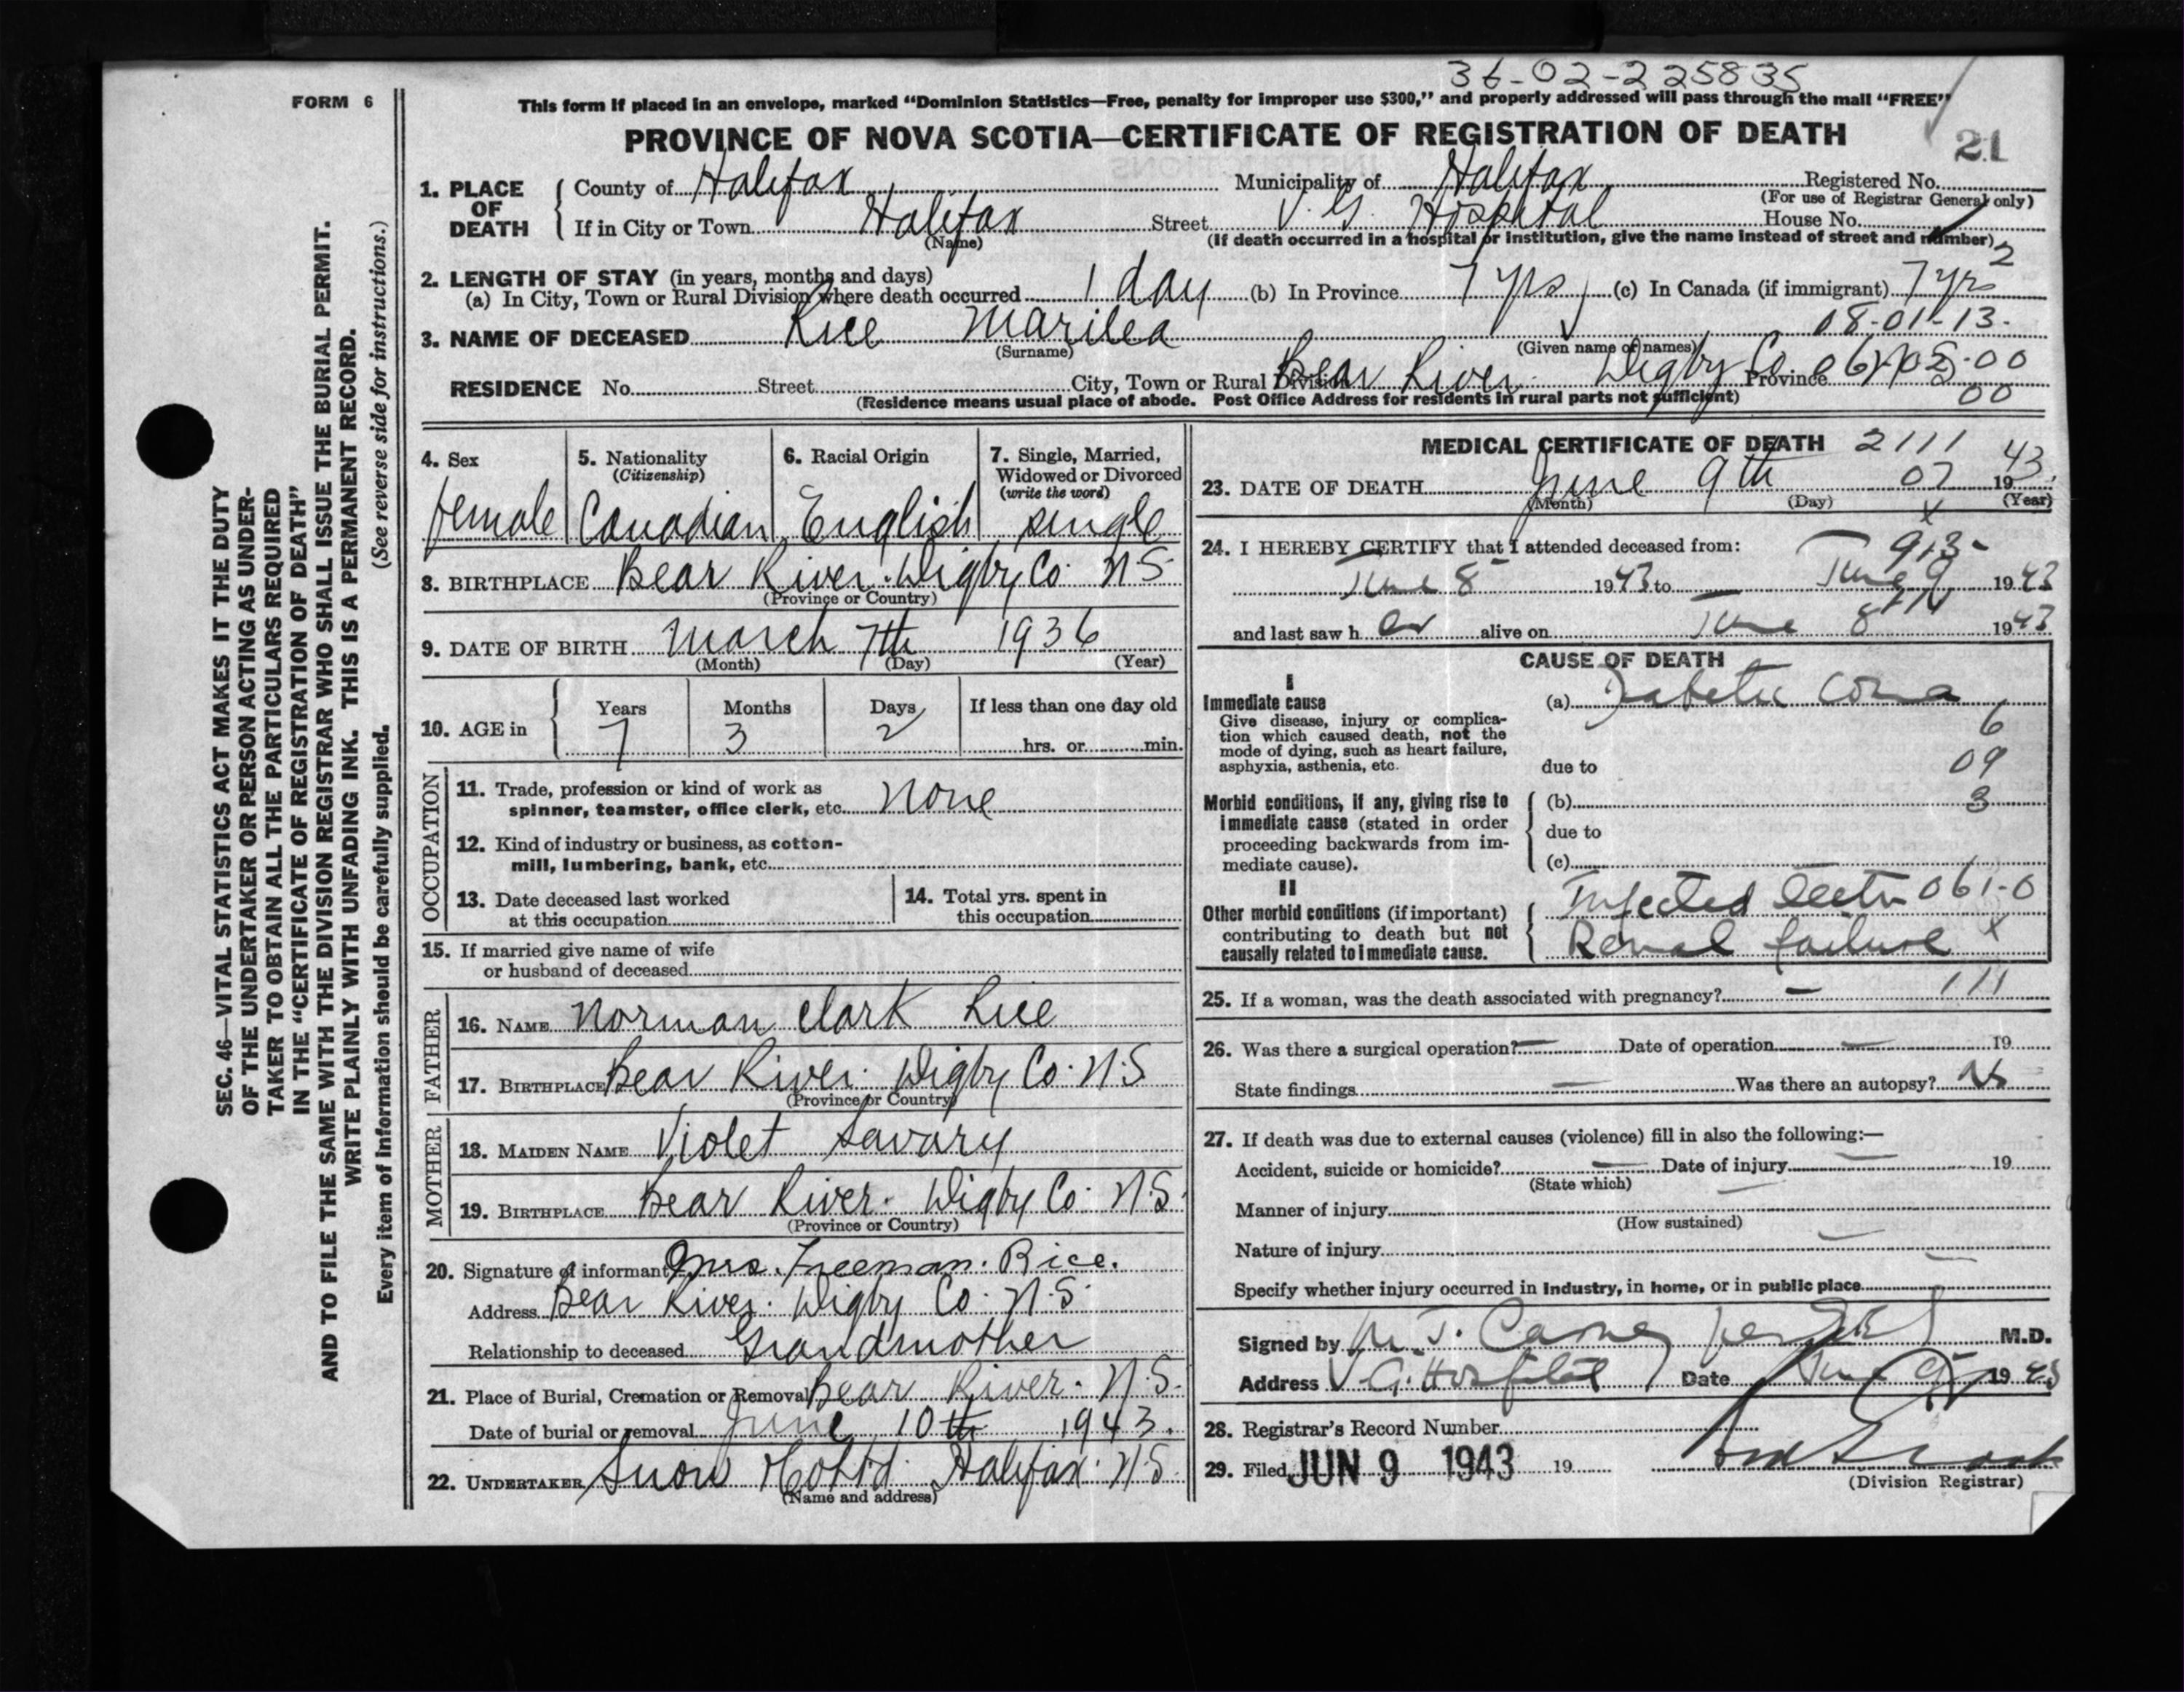 36-02-225835
FORM 6
This form if placed in an envelope, marked "Dominion Statistics—Free, penalty for improper use $300," and properly addressed will pass through the mail "FREE"
PROVINCE OF NOVA SCOTIA—CERTIFICATE OF REGISTRATION OF DEATH
21
SEC. 46—VITAL STATISTICS ACT MAKES IT THE DUTY
OF THE UNDERTAKER OR PERSON ACTING AS UNDER-
TAKER TO OBTAIN ALL THE PARTICULARS REQUIRED
IN THE "CERTIFICATE OF REGISTRATION OF DEATH"
AND TO FILE THE SAME WITH THE DIVISION REGISTRAR WHO SHALL ISSUE THE BURIAL PERMIT.
WRITE PLAINLY WITH UNFADING INK. THIS IS A PERMANENT RECORD.
Every item of information should be carefully supplied. (See reverse side for instructions.)
1. PLACE OF DEATH
County of Halifax Municipality of Halifax Registered No.
(For use of Registrar General only)
If in City or Town Halifax Street V. G. Hospital House No.
(Name) (If death occurred in a hospital or institution, give the name instead of street and number)
2. LENGTH OF STAY (in years, months and days)
(a) In City, Town or Rural Division where death occurred 1 day (b) In Province 7 yrs (c) In Canada (if immigrant) 7 yrs 2
08-01-13.
3. NAME OF DECEASED Rice Marilea
(Surname) (Given name or names)
RESIDENCE No. Street City, Town or Rural Division Bear River Digby Co Province
(Residence means usual place of abode. Post Office Address for residents in rural parts not sufficient) 00
4. Sex female
5. Nationality (Citizenship) Canadian
6. Racial Origin English
7. Single, Married, Widowed or Divorced (write the word) single
8. BIRTHPLACE Bear River. Digby Co. N.S.
(Province or Country)
9. DATE OF BIRTH March 7th 1936
(Month) (Day) (Year)
10. AGE in Years 7 Months 3 Days 2 If less than one day old hrs. or min.
OCCUPATION
11. Trade, profession or kind of work as
spinner, teamster, office clerk, etc. None
12. Kind of industry or business, as cotton-
mill, lumbering, bank, etc.
13. Date deceased last worked
at this occupation
14. Total yrs. spent in
this occupation
15. If married give name of wife
or husband of deceased
FATHER
16. NAME Norman Clark Rice
17. BIRTHPLACE Bear River. Digby Co. N.S
(Province or Country)
MOTHER
18. MAIDEN NAME Violet Savary
19. BIRTHPLACE Bear River. Digby Co. N.S.
(Province or Country)
20. Signature of informant Mrs. Freeman. Rice.
Address Bear River. Digby Co. N.S.
Relationship to deceased Grandmother
21. Place of Burial, Cremation or Removal Bear River. N.S.
Date of burial or removal June 10th 1943.
22. UNDERTAKER Snow Halifax. N.S
(Name and address)
MEDICAL CERTIFICATE OF DEATH 2111
23. DATE OF DEATH June 9th 07 1943.
(Month) (Day) (Year)
24. I HEREBY CERTIFY that I attended deceased from:
June 8 1943 to June 9 1943
and last saw her alive on June 8 1943
CAUSE OF DEATH
I
Immediate cause
Give disease, injury or complica-
tion which caused death, not the
mode of dying, such as heart failure,
asphyxia, asthenia, etc.
(a) Diabetic Coma
6
due to 09
Morbid conditions, if any, giving rise to
immediate cause (stated in order
proceeding backwards from im-
mediate cause).
(b) 3
due to
(c)
II
Other morbid conditions (if important)
contributing to death but not
causally related to immediate cause.
Infected teeth 061-0
Renal failure x
25. If a woman, was the death associated with pregnancy? — 111
26. Was there a surgical operation? — Date of operation — 19
State findings — Was there an autopsy? No
27. If death was due to external causes (violence) fill in also the following:—
Accident, suicide or homicide? — Date of injury — 19
(State which)
Manner of injury —
(How sustained)
Nature of injury —
Specify whether injury occurred in industry, in home, or in public place —
Signed by M.D.
Address V.G. Hospital Date June 9 1943
28. Registrar's Record Number
29. Filed JUN 9 1943 19
(Division Registrar)